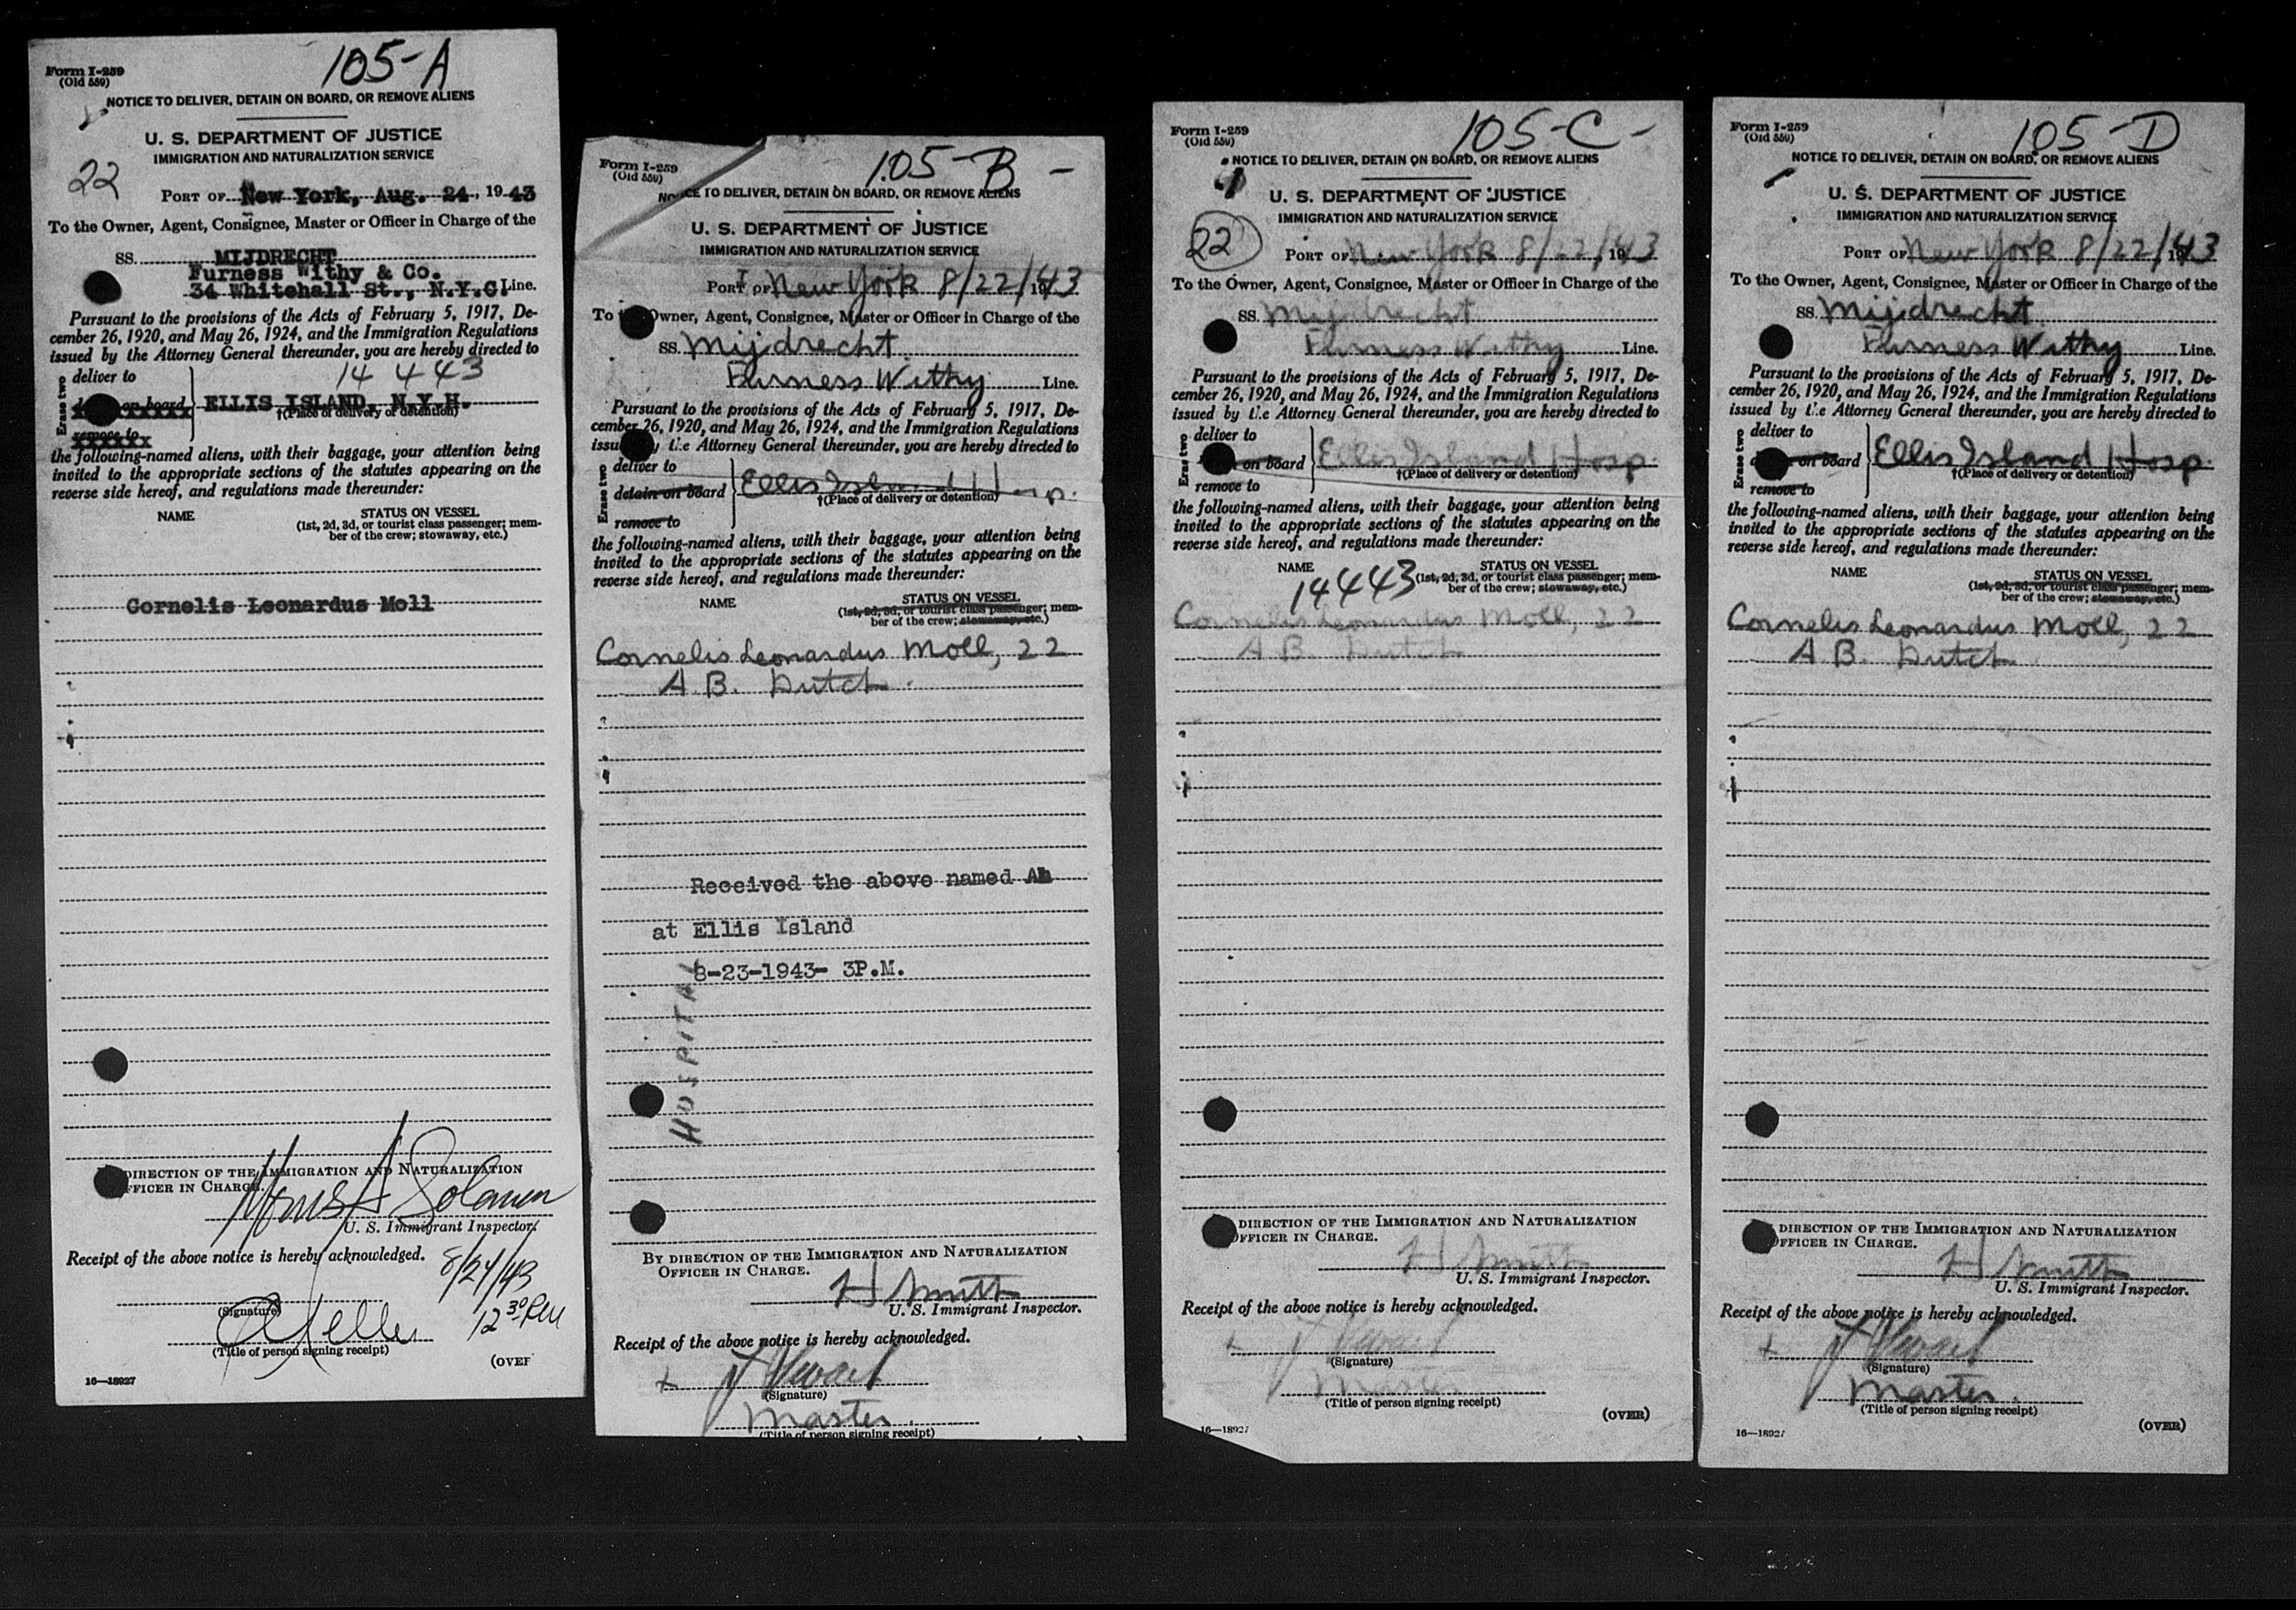 105-A
Form I-259
(Old 559)
NOTICE TO DELIVER, DETAIN ON BOARD, OR REMOVE ALIENS
U. S. DEPARTMENT OF JUSTICE
IMMIGRATION AND NATURALIZATION SERVICE
22
PORT OF New York, Aug. 24, 1943
To the Owner, Agent, Consignee, Master or Officer in Charge of the
SS. MIJDRECHT
Furness Withy & Co.
34 Whitehall St., N.Y.C. Line.
Pursuant to the provisions of the Acts of February 5, 1917, De-
cember 26, 1920, and May 26, 1924, and the Immigration Regulations
issued by the Attorney General thereunder, you are hereby directed to
14443
Erase two
deliver to
on board
ELLIS ISLAND, N.Y.H.
†(Place of delivery or detention)
remove to
the following-named aliens, with their baggage, your attention being
invited to the appropriate sections of the statutes appearing on the
reverse side hereof, and regulations made thereunder:
NAME
STATUS ON VESSEL
(1st, 2d, 3d, or tourist class passenger; mem-
ber of the crew; stowaway, etc.)
Cornelis Leonardus Moll
DIRECTION OF THE IMMIGRATION AND NATURALIZATION
OFFICER IN CHARGE.
U. S. Immigrant Inspector.
Receipt of the above notice is hereby acknowledged.
8/24/43
12 30 PM
(Signature)
(Title of person signing receipt)
(OVER
16—18927
105-B -
Form I-259
(Old 559)
NOTICE TO DELIVER, DETAIN ON BOARD, OR REMOVE ALIENS
U. S. DEPARTMENT OF JUSTICE
IMMIGRATION AND NATURALIZATION SERVICE
PORT OF New York 8/22/1943
To Owner, Agent, Consignee, Master or Officer in Charge of the
SS. Mijdrecht
Furness Withy Line.
Pursuant to the provisions of the Acts of February 5, 1917, De-
cember 26, 1920, and May 26, 1924, and the Immigration Regulations
issued by the Attorney General thereunder, you are hereby directed to
Erase two
deliver to
detain on board
Ellis Island Hosp.
†(Place of delivery or detention)
remove to
the following-named aliens, with their baggage, your attention being
invited to the appropriate sections of the statutes appearing on the
reverse side hereof, and regulations made thereunder:
NAME
STATUS ON VESSEL
(1st, 2d, 3d, or tourist class passenger; mem-
ber of the crew; stowaway, etc.)
Cornelis Leonardus Moll, 22
A.B. Dutch.
Received the above named
at Ellis Island
8-23-1943- 3P.M.
HOSPITAL
BY DIRECTION OF THE IMMIGRATION AND NATURALIZATION
OFFICER IN CHARGE.
H Smith
U. S. Immigrant Inspector.
Receipt of the above notice is hereby acknowledged.
(Signature)
Master.
(Title of person signing receipt)
105-C -
Form I-259
(Old 559)
NOTICE TO DELIVER, DETAIN ON BOARD, OR REMOVE ALIENS
U. S. DEPARTMENT OF JUSTICE
IMMIGRATION AND NATURALIZATION SERVICE
22
PORT OF New York 8/22/1943
To the Owner, Agent, Consignee, Master or Officer in Charge of the
SS. Mijdrecht
Furness Withy Line.
Pursuant to the provisions of the Acts of February 5, 1917, De-
cember 26, 1920, and May 26, 1924, and the Immigration Regulations
issued by the Attorney General thereunder, you are hereby directed to
Erase two
deliver to
on board
Ellis Island Hosp.
†(Place of delivery or detention)
remove to
the following-named aliens, with their baggage, your attention being
invited to the appropriate sections of the statutes appearing on the
reverse side hereof, and regulations made thereunder:
NAME
STATUS ON VESSEL
14443
(1st, 2d, 3d, or tourist class passenger; mem-
ber of the crew; stowaway, etc.)
Cornelis Leonardus Moll, 22
A.B. Dutch
DIRECTION OF THE IMMIGRATION AND NATURALIZATION
OFFICER IN CHARGE.
H Smith
U. S. Immigrant Inspector.
Receipt of the above notice is hereby acknowledged.
(Signature)
Master
(Title of person signing receipt)
(OVER)
16—18927
105-D
Form I-259
(Old 559)
NOTICE TO DELIVER, DETAIN ON BOARD, OR REMOVE ALIENS
U. S. DEPARTMENT OF JUSTICE
IMMIGRATION AND NATURALIZATION SERVICE
PORT OF New York 8/22/1943
To the Owner, Agent, Consignee, Master or Officer in Charge of the
SS. Mijdrecht
Furness Withy Line.
Pursuant to the provisions of the Acts of February 5, 1917, De-
cember 26, 1920, and May 26, 1924, and the Immigration Regulations
issued by the Attorney General thereunder, you are hereby directed to
Erase two
deliver to
on board
Ellis Island Hosp.
†(Place of delivery or detention)
remove to
the following-named aliens, with their baggage, your attention being
invited to the appropriate sections of the statutes appearing on the
reverse side hereof, and regulations made thereunder:
NAME
STATUS ON VESSEL
(1st, 2d, 3d, or tourist class passenger; mem-
ber of the crew; stowaway, etc.)
Cornelis Leonardus Moll, 22
A.B. Dutch
DIRECTION OF THE IMMIGRATION AND NATURALIZATION
OFFICER IN CHARGE.
H Smith
U. S. Immigrant Inspector.
Receipt of the above notice is hereby acknowledged.
(Signature)
Master.
(Title of person signing receipt)
(OVER)
16—18927